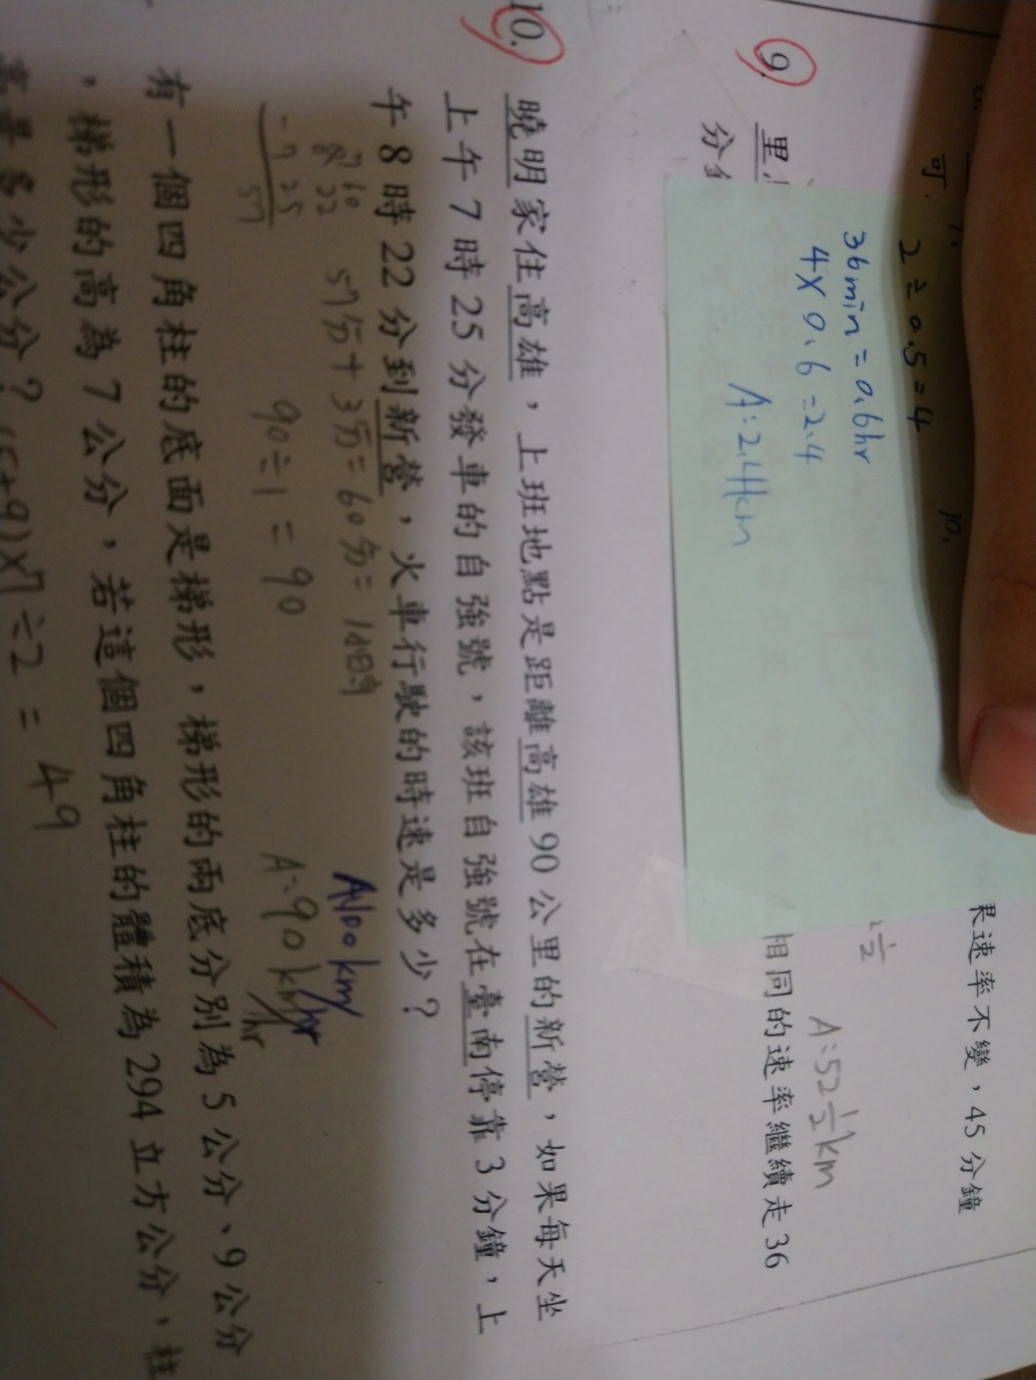 可.
2÷0.5=4
10.
36min=0.6hr
4×0.6=2.4
A:2.4km
果速率不變，45分鐘
A:52½km
9.
相同的速率繼續走36
10.
曉明家住高雄，上班地點是距離高雄90公里的新營，如果每天坐
上午7時25分發車的自強號，該班自強號在臺南停靠3分鐘，上
午8時22分到新營，火車行駛的時速是多少？
7 60
8 22
-7 25
57
57分+3分=60分=1小時
90÷1=90
A:100km/hr
A:90km/hr
有一個四角柱的底面是梯形，梯形的兩底分別為5公分、9公分
，梯形的高為7公分，若這個四角柱的體積為294立方公分，柱
高是多少公分？(5+9)×7÷2=49